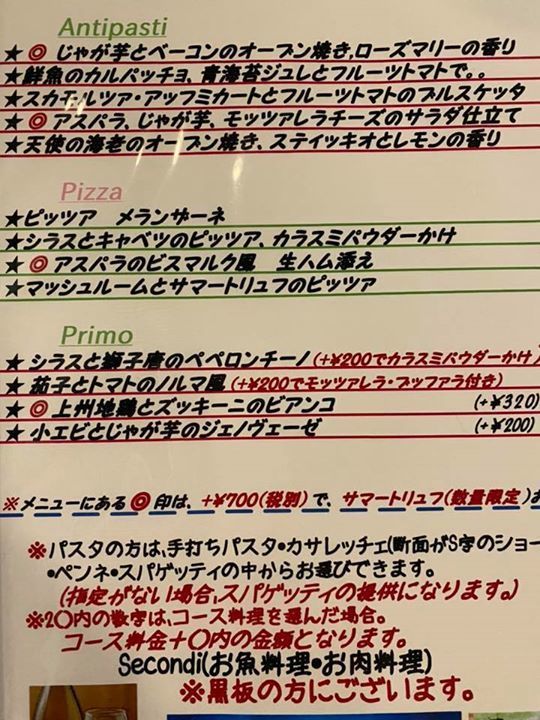 Antipasti
★ ◎ じゃが芋とベーコンのオーブン焼き,ローズマリーの香り
★鮮魚のカルパッチョ、青海苔ジュレとフルーツトマトで。。
★スカモルツァ・アッフミカートとフルーツトマトのブルスケッタ
★ ◎ アスパラ、じゃが芋、モッツァレラチーズのサラダ仕立て
★天使の海老のオーブン焼き、スティッキオとレモンの香り
Pizza
★ピッツア　メランザーネ
★シラスとキャベツのピッツァ、カラスミパウダーかけ
★ ◎ アスパラのビスマルク風　生ハム添え
★マッシュルームとサマートリュフのピッツァ
Primo
★ シラスと獅子唐のペペロンチーノ(+¥200でカラスミパウダーかけ)
★ 茄子とトマトのノルマ風(+¥200でモッツァレラ・ブッファラ付き)
★ ◎ 上州地鶏とズッキーニのビアンコ (+¥320)
★ 小エビとじゃが芋のジェノヴェーゼ (+¥200)
※メニューにある ◎ 印は、+¥700(税別)で、サマートリュフ(数量限定)お
※パスタの方は、手打ちパスタ・カサレッチェ(断面がS字のショー
・ペンネ・スパゲッティの中からお選びできます。
(指定がない場合,スパゲッティの提供になります。)
※2〇内の数字は、コース料理を選んだ場合。
コース料金+〇内の金額となります。
Secondi(お魚料理・お肉料理)
※黒板の方にございます。